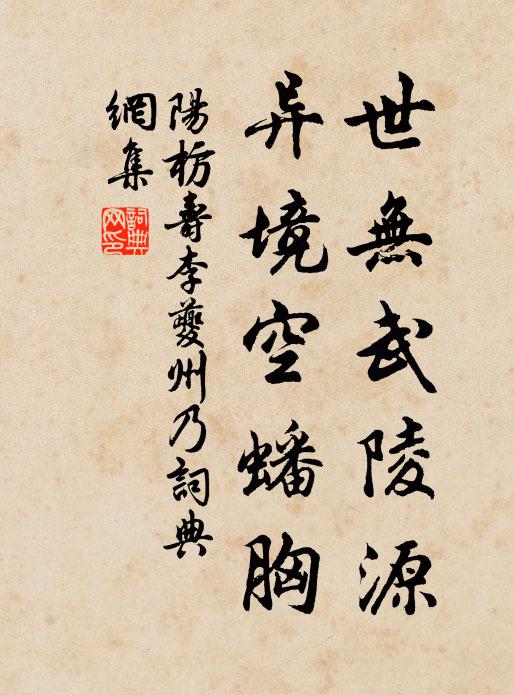 世無武陵源
异境空蟠胸
陽枋壽李夔州乃詞典
網集
詞典網印